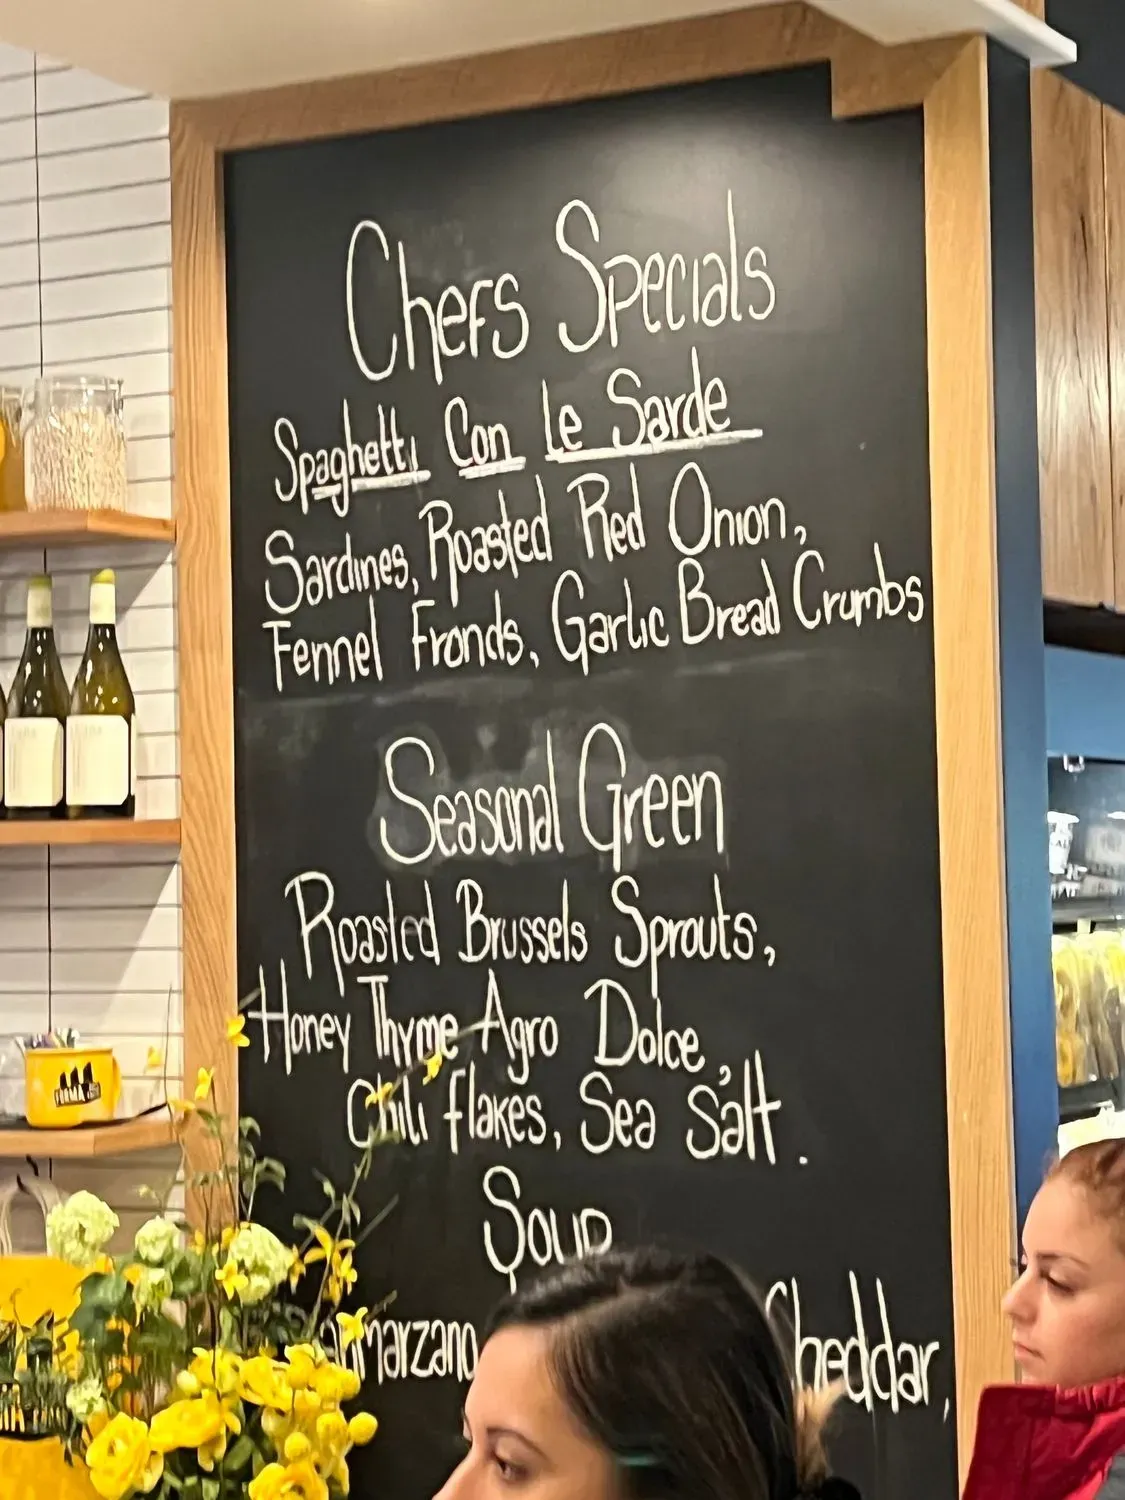 Chefs Specials
Spaghetti Con Le Sarde
Sardines, Roasted Red Onion,
Fennel Fronds, Garlic Bread Crumbs
Seasonal Green
Roasted Brussels Sprouts,
Honey Thyme Agro Dolce,
Chili flakes, Sea Salt.
Soup
anmarzano Cheddar,
FORMA